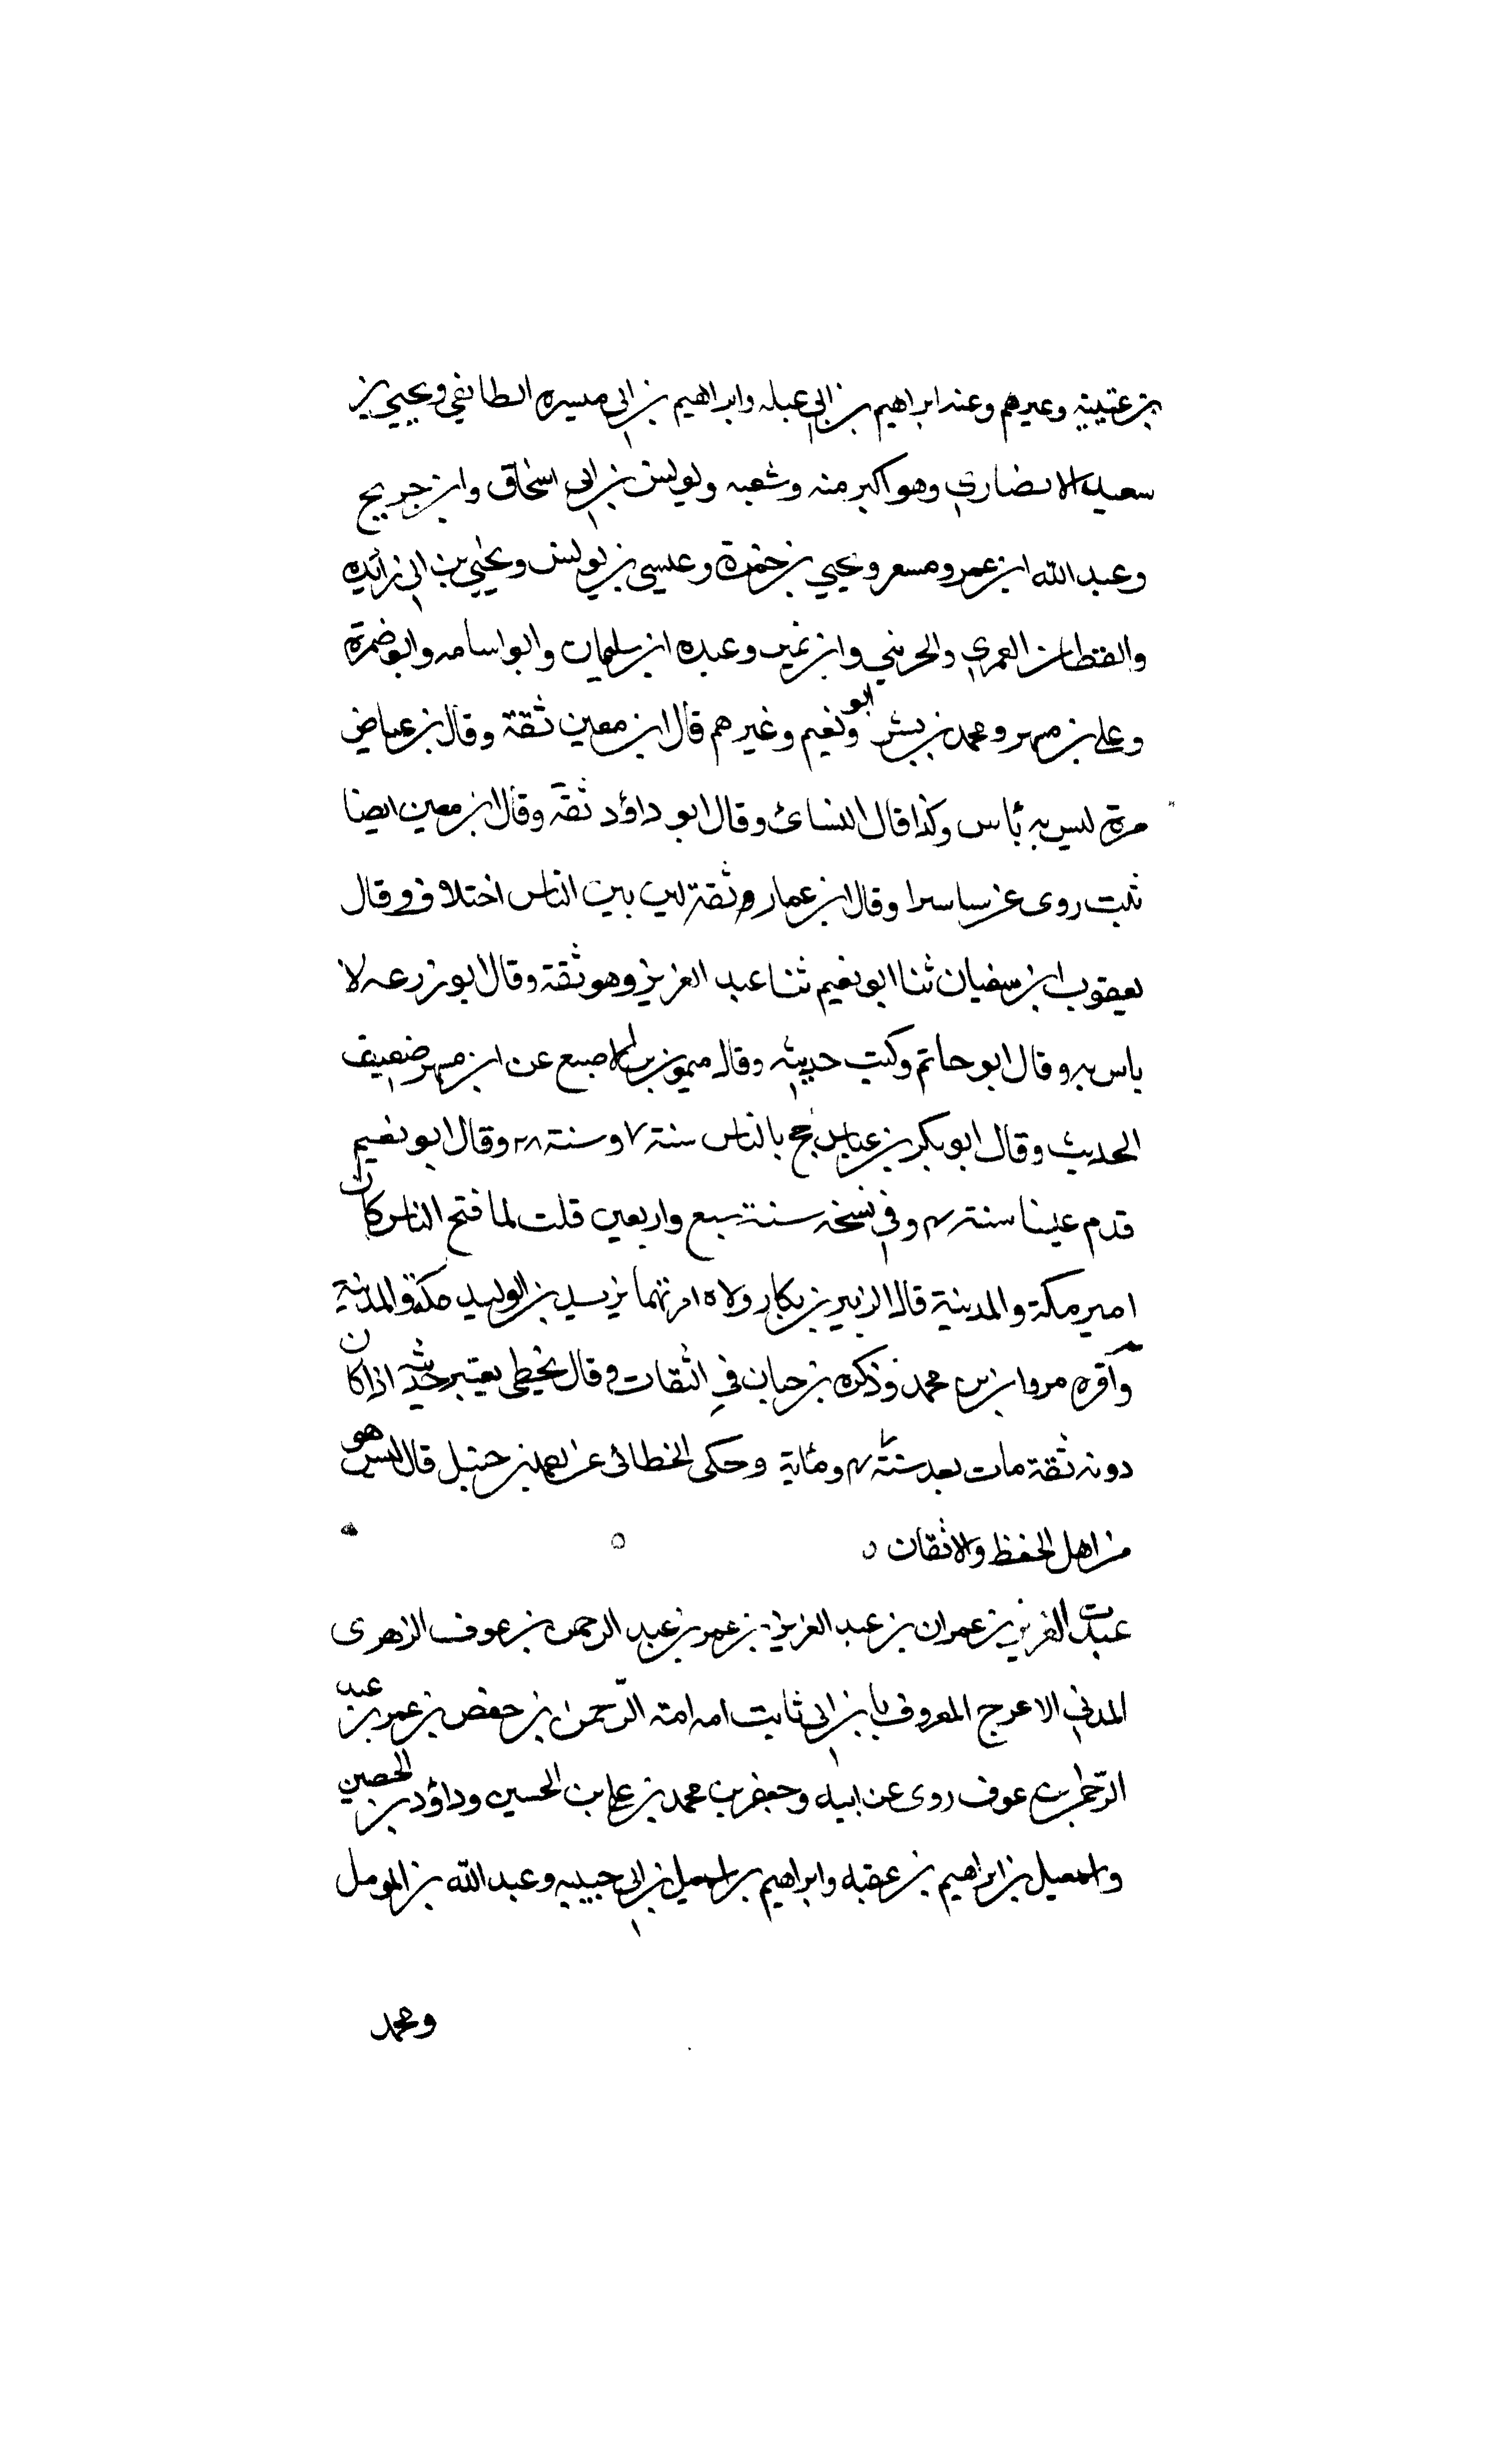 بن عتيبة وغيرهم وعنه ابراهيم بن ابي عبله وابراهيم بن ابي ميسره الطايفي ويحيي بن
سعيد الانصاري وهو اكبر منه وشعبه ويونس بن ابي اسحاق وابن جريج
وعبد الله ابن عمرو ومسعر ويحيي بن حمزة وعيسى بن يونس ويحيي بن ابي زائده
والقطان العمري والخريبي وابن نمير وعبده ابن سليمان وابو اسامه وابو ضمرة
وعلي بن مسهر ومحمد بن بشر وابو نعيم وغيرهم قال ابن معين ثقة وقال بن عياض
مرة ليس به بأس وكذا قال النسائ وقال ابو داؤد ثقة وقال ابن معين ايضا
ثبت روى عن وقال ابن عمار ثقة ليس بين الناس اختلاف وقال
يعقوب ابن سفيان ثنا ابو نعيم ثنا عبد العزيز وهو ثقة وقال ابو زرعه لا
باس به وقال ابو حاتم وكتب حديثه وقال ميمون بن الاصبع عن ابن مسهر ضعيف
الحديث وقال ابو بكر بن عياس حج بالناس سنة وسنة وقال ابو نعيم
قدم علينا سنة وفي نسخه سنة سبع واربعين قلت لما فتح الناس كان
امير مكة والمدينة قال الزبير بن بكار ولاه يزيد بن الوليد مكة والمدينة
واقره مروان بن محمد وذكره بن حبان في الثقات وقال يخطى يعتبر حديثه اذا كان
دونه ثقة مات بعد سنة ومئاية وحكى الخطائى عن احمد بن حنبل قال ليس هو
من اهل الحفظ والاثقان
عبد العزيز بن عمران بن عبد العزيز بن عمر بن عبد الرحمن بن عوف الزهرى
المدني الاعرج المعروف بابن ابي ثابت امه امة الرّحمن ابن حفص بن عمر بن عبد
الرّحمن بن عوف روى عن ابيه وجعفر بن محمد بن علي بن الحسين وداؤد بن الحصين
واسمعيل بن ابراهيم بن عقبه وابراهيم بن اسمعيل بن ابي حبيبه وعبد الله بن المومل
ومحمد